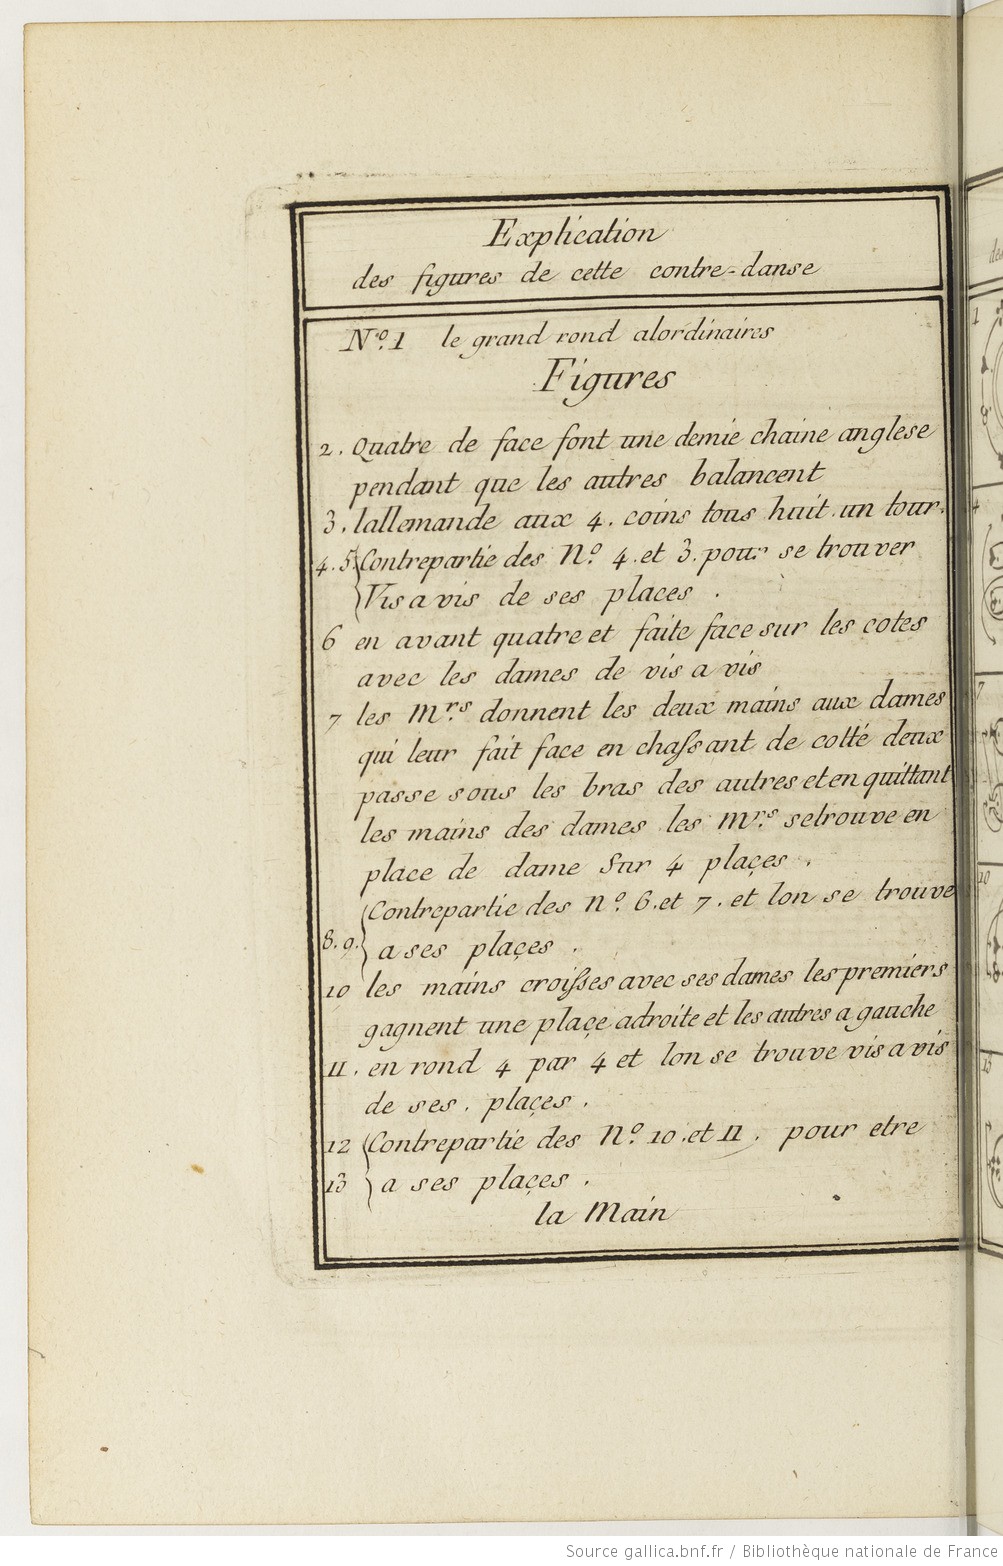 Explication
des figures de cette contre-danse
Nº. 1 le grand rond alordinaires
Figures
2. Quatre de face font une demie chaine anglese
pendant que les autres balancent
3. lallemande aux 4. coins tous huit. un tour.
4. 5. Contrepartie des Nº. 4. et 3. pour se trouver
Vis a vis de ses places.
6 en avant quatre et faite face sur les cotes
avec les dames de vis a vis
7 les Mrs. donnent les deux mains aux dames
qui leur fait face en chaſsant de cotté deux
passe sous les bras des autres et en quittant
les mains des dames les Mrs. se trouve en
place de dame Sur 4 plaçes.
Contrepartie des Nº. 6. et 7. et lon se trouve
8. 9. a ses plaçes.
10 les mains croiſses avec ses dames les premiers
gagnent une plaçe adroite et les autres a gauche
11. en rond 4 par 4 et lon se trouve vis a vis
de ses. plaçes.
12 Contrepartie des Nº. 10. et 11. pour etre
13 a ses plaçes.
la Main
1
4
7
10
13
Source gallica.bnf.fr / Bibliothèque nationale de France